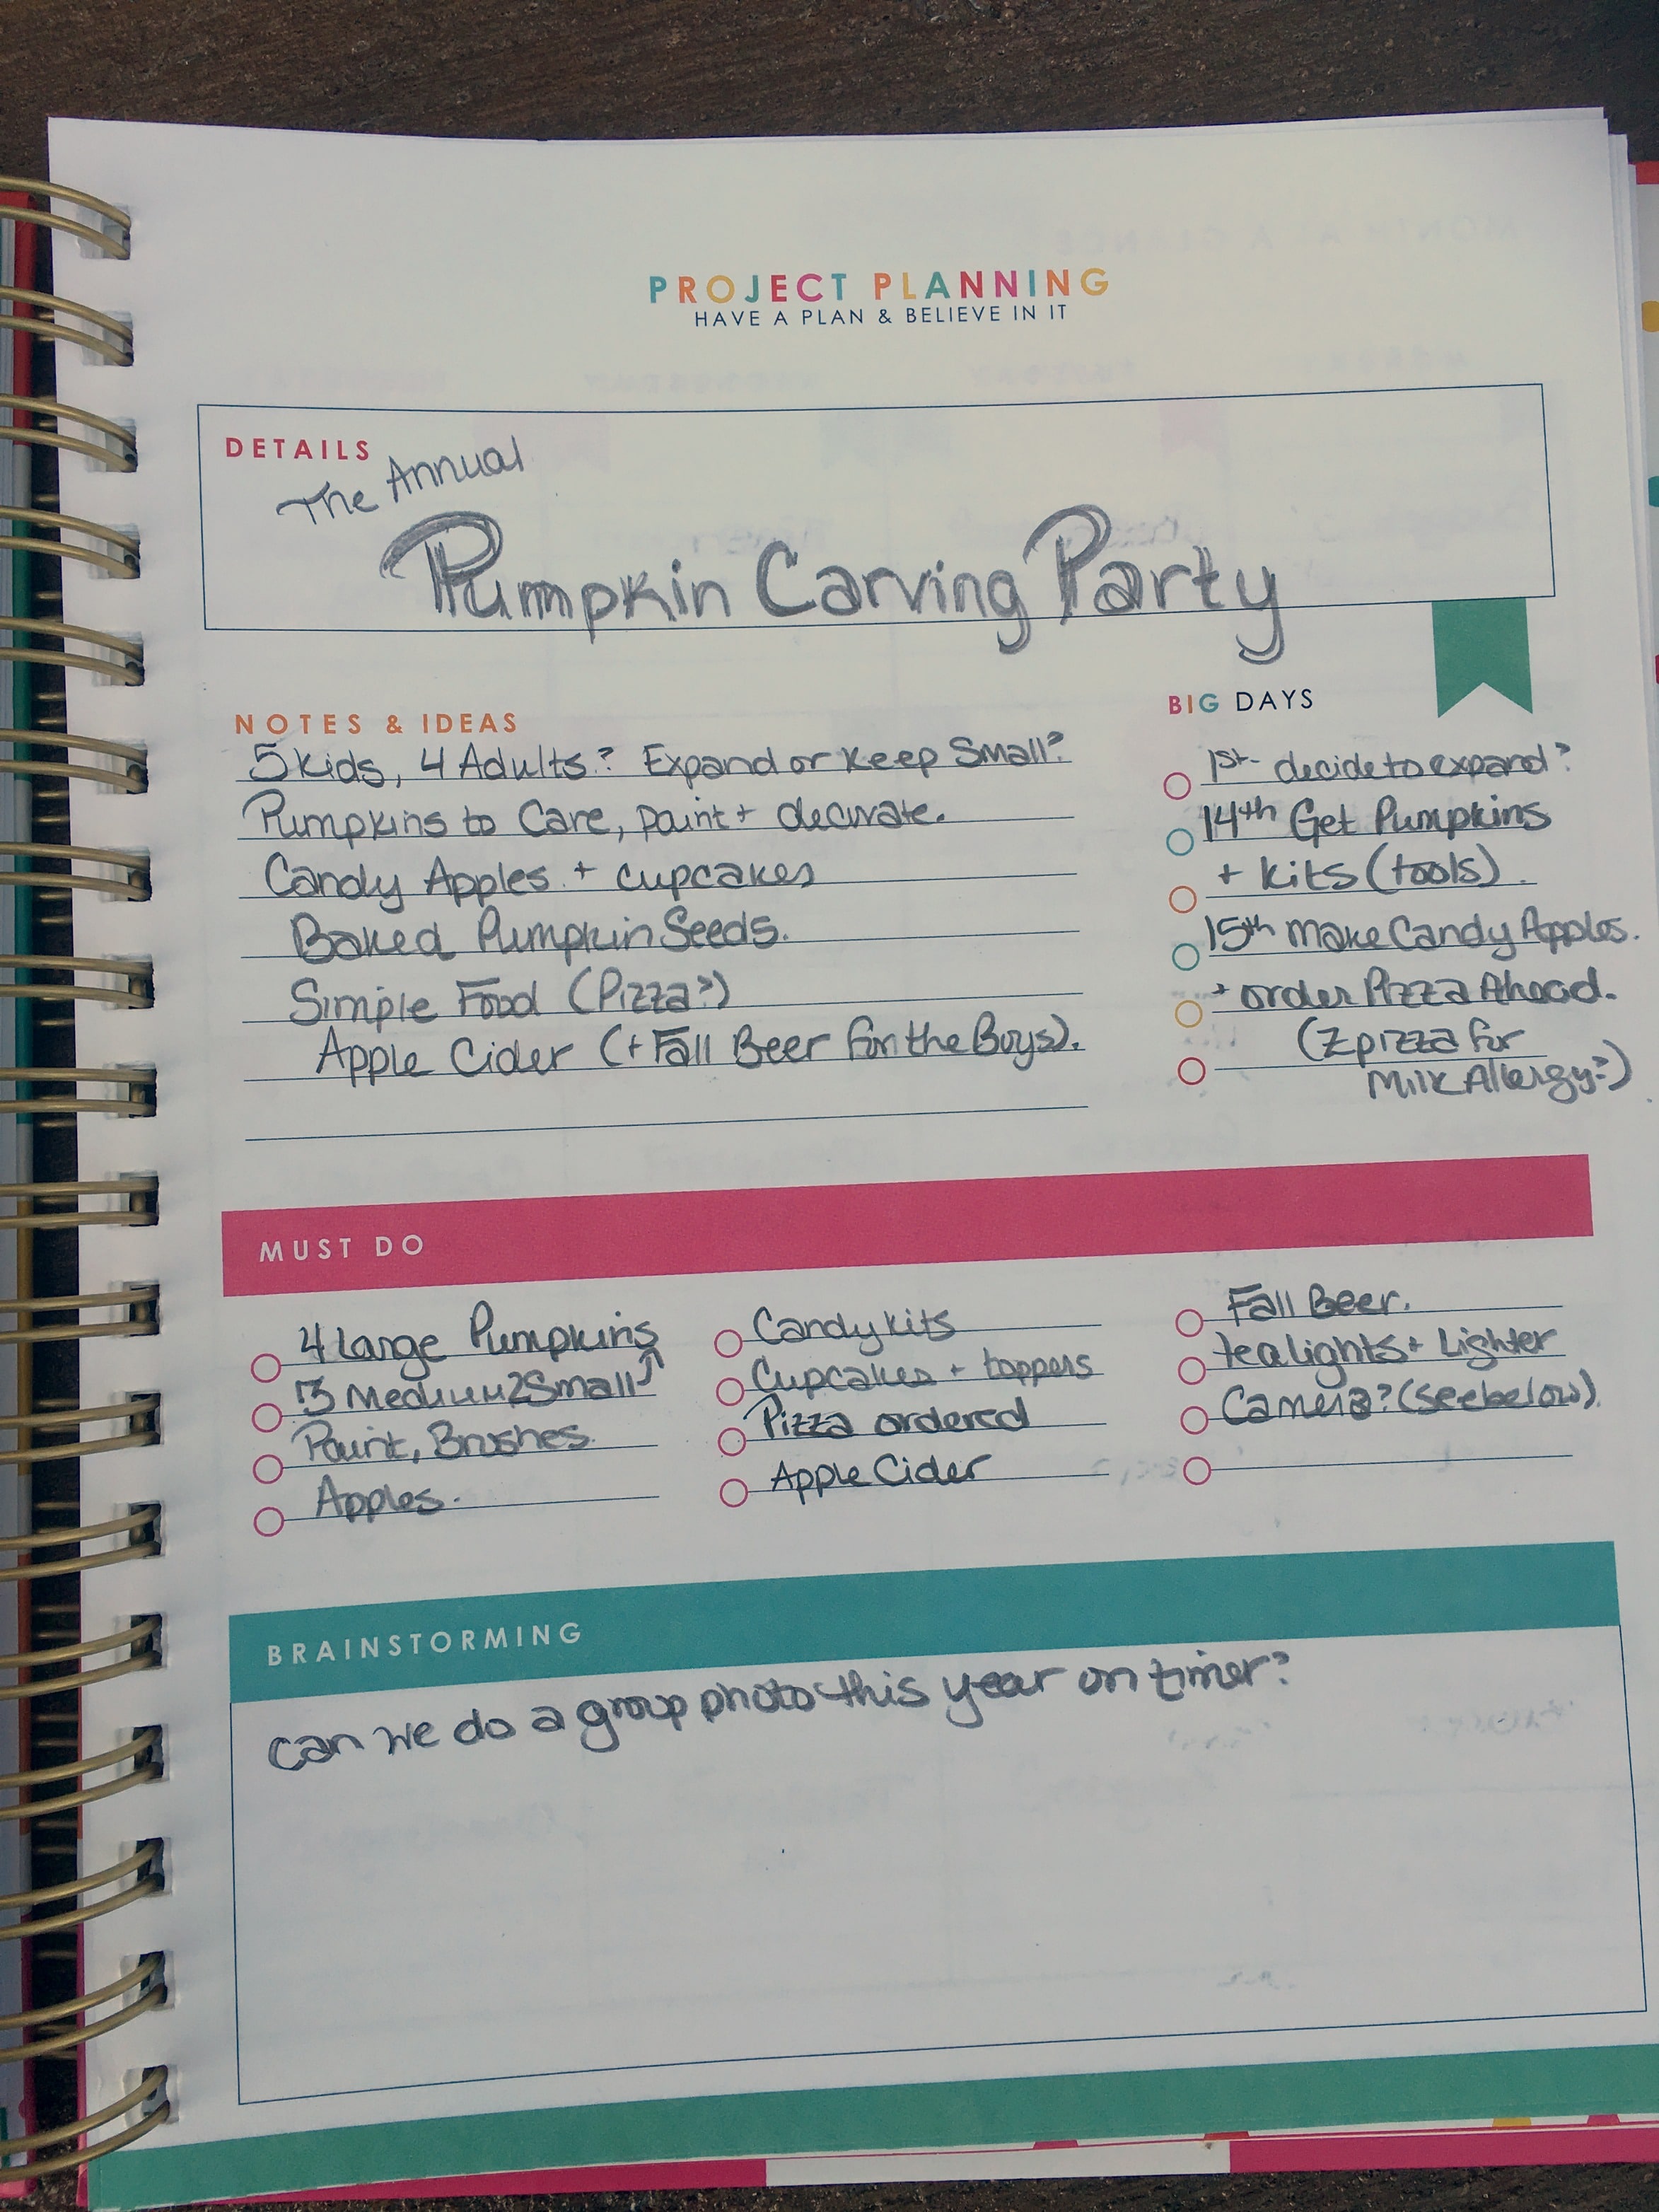 PROJECT PLANNING
HAVE A PLAN & BELIEVE IN IT
DETAILS
The Annual
Pumpkin Carving Party
NOTES & IDEAS
5 kids, 4 Adults? Expand or Keep Small?
Pumpkins to Care, paint + decorate.
Candy Apples + cupcakes
Baked Pumpkin Seeds.
Simple Food (Pizza?)
Apple Cider (+ Fall Beer for the Boys).
BIG DAYS
1st - decide to expand?
14th Get Pumpkins
+ kits (tools).
15th Make Candy Apples.
+ order Pizza Ahead.
(Zpizza for
Milk Allergy?)
MUST DO
4 large Pumpkins
3 Medium 2 Small
Paint, Brushes.
Apples.
Candy kits
Cupcakes + toppers
Pizza ordered
Apple Cider
Fall Beer.
tealights + Lighter
Camera? (see below).
BRAINSTORMING
can we do a group photo this year on timer?